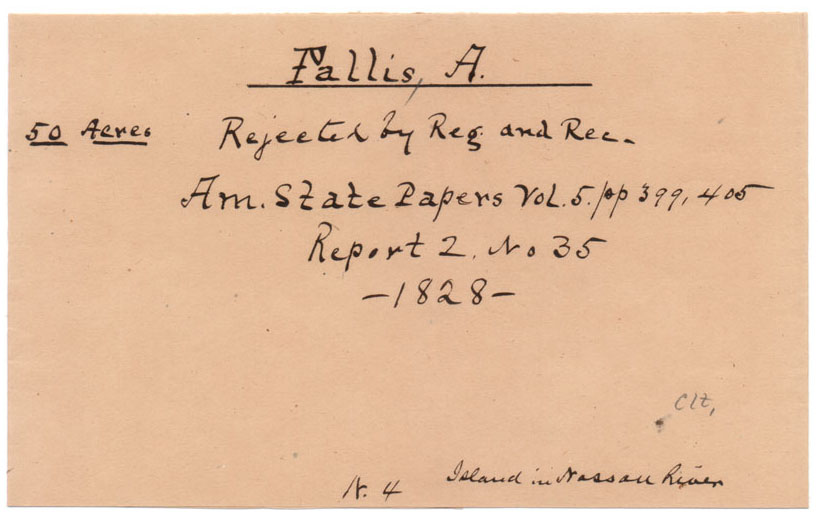 Fallis, A.
50 Acres Rejected by Reg. and Rec.
Am. State Papers Vol. 5. pp 399, 405
Report 2. No 35
-1828-
Clt,
N. 4 Island in Nassau River